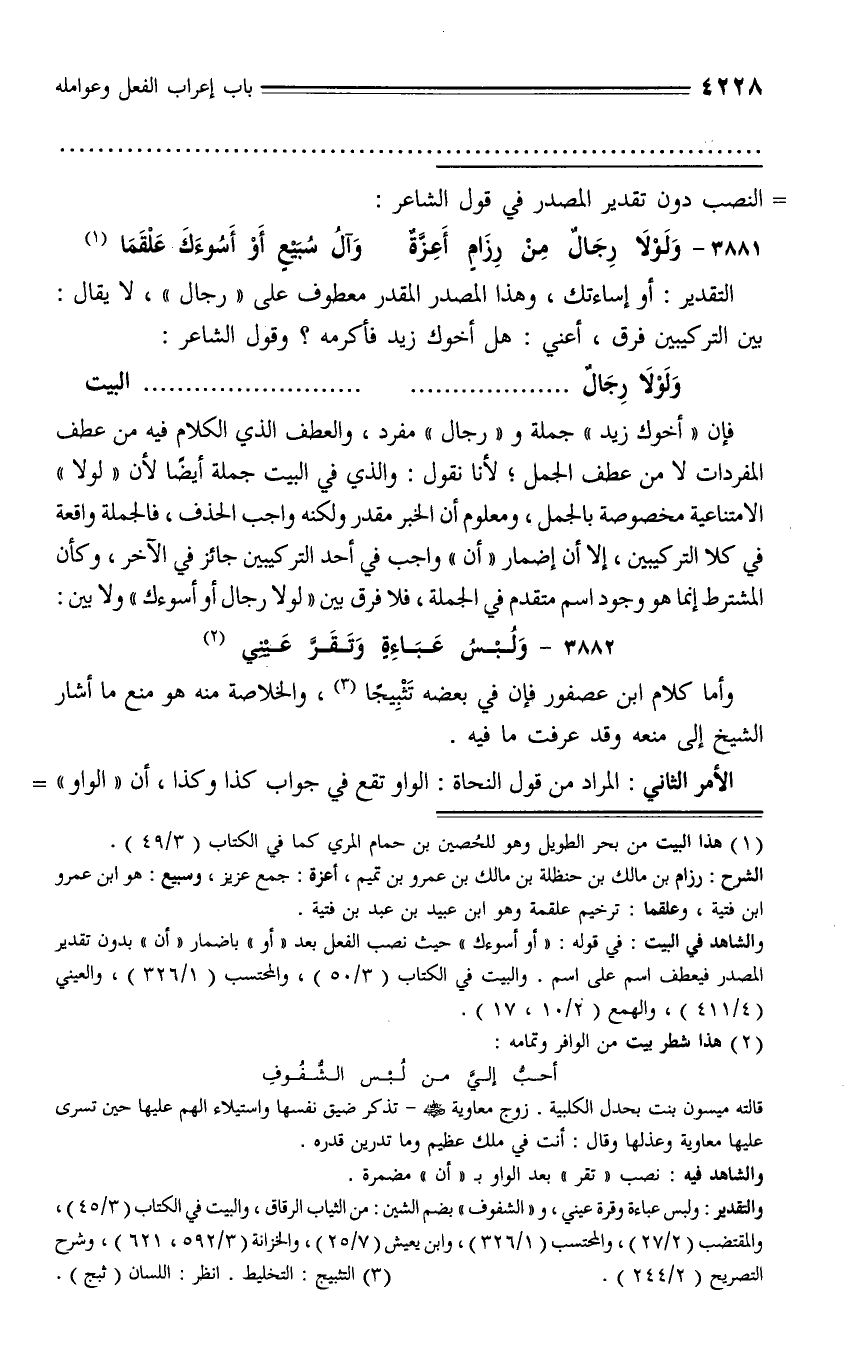 ٤٢٢٨ باب إعراب الفعل وعوامله
................................................................................
= النصب دون تقدير المصدر في قول الشاعر :
٣٨٨١ - وَلَوْلَا رِجَالٌ مِنْ رِزَامٍ أَعِزَّةٌ وَآلُ سُبَيْعٍ أَوْ أَسُوءَكَ عَلْقَمَا (١)
التقدير : أو إساءتك ، وهذا المصدر المقدر معطوف على « رجال » ، لا يقال :
بين التركيبين فرق ، أعني : هل أخوك زيد فأكرمه ؟ وقول الشاعر :
وَلَوْلَا رِجَالٌ ................... .......................... البيت
فإن « أخوك زيد » جملة و « رجال » مفرد ، والعطف الذي الكلام فيه من عطف
المفردات لا من عطف الجمل ؛ لأنا نقول : والذي في البيت جملة أيضًا لأن « لولا »
الامتناعية مخصوصة بالجمل ، ومعلوم أن الخبر مقدر ولكنه واجب الحذف ، فالجملة واقعة
في كلا التركيبين ، إلا أن إضمار « أن » واجب في أحد التركيبين جائز في الآخر ، وكأن
المشترط إنما هو وجود اسم متقدم في الجملة ، فلا فرق بين « لولا رجال أو أسوءك » ولا بين :
٣٨٨٢ - وَلُبْسُ عَبَاءِةٍ وَتَقَرَّ عَيْنِي (٢)
وأما كلام ابن عصفور فإن في بعضه تَثْبِيجًا (٣) ، والخلاصة منه هو منع ما أشار
الشيخ إلى منعه وقد عرفت ما فيه .
الأمر الثاني : المراد من قول النحاة : الواو تقع في جواب كذا وكذا ، أن « الواو » =
(١) هذا البيت من بحر الطويل وهو للحُصين بن حمام المري كما في الكتاب ( ٤٩/٣ ) .
الشرح : رزام بن مالك بن حنظلة بن مالك بن عمرو بن تميم ، أعزة : جمع عزيز ، وسبيع : هو ابن عمرو
ابن فتية ، وعلقما : ترخيم علقمة وهو ابن عبيد بن عبد بن فتية .
والشاهد في البيت : في قوله : « أو أسوءك » حيث نصب الفعل بعد « أو » باضمار « أن » بدون تقدير
المصدر فيعطف اسم على اسم . والبيت في الكتاب ( ٥٠/٣ ) ، والمحتسب ( ٣٢٦/١ ) ، والعيني
( ٤١١/٤ ) ، والهمع ( ١٠/٢ ، ١٧ ) .
(٢) هذا شطر بيت من الوافر وتمامه :
أحبُّ إليَّ من لُبْس الشُّفُوفِ
قالته ميسون بنت بحدل الكلبية . زوج معاوية ﷺ - تذكر ضيق نفسها واستيلاء الهم عليها حين تسرى
عليها معاوية وعذلها وقال : أنت في ملك عظيم وما تدرين قدره .
والشاهد فيه : نصب « تقر » بعد الواو بـ « أن » مضمرة .
والتقدير : ولبس عباءة وقرة عيني ، و « الشفوف » بضم الشين : من الثياب الرقاق ، والبيت في الكتاب ( ٤٥/٣ ) ،
والمقتضب ( ٢٧/٢ ) ، والمحتسب ( ٣٢٦/١ ) ، وابن يعيش ( ٢٥/٧ ) ، والخزانة ( ٥٩٢/٣ ، ٦٢١ ) ، وشرح
التصريح ( ٢٤٤/٢ ) . (٣) التثبيج : التخليط . انظر : اللسان ( ثبج ) .